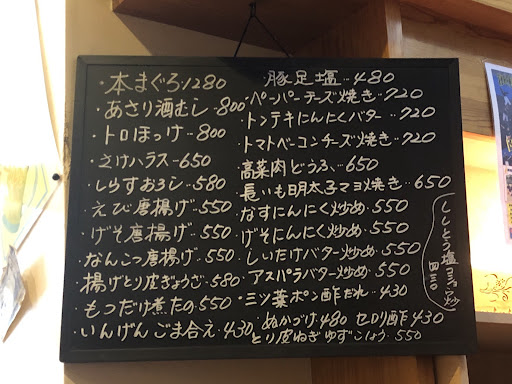 ・本まぐろ 1280
・あさり酒むし-800
・トロほっけ-800
・さけハラス-650
・しらすおろし-580
・えび唐揚げ-550
・げそ唐揚げ-550
・なんこつ唐揚げ.550
・揚げとり皮ぎょうざ-580
・もつだけ煮たの.550
・いんげんごま合え.430
・豚足塩-480
・ペーパーチーズ焼き-720
・トンテキにんにくバター-720
・トマトベーコンチーズ焼き-720
・高菜肉どうふ-650
・長いも明太子マヨ焼き-650
・なすにんにく炒め.550
・げそにんにく炒め-550
・しいたけバター炒め.550
・アスパラバター炒め-550
・三ツ葉ポン酢だれ-430
・ぬかづけ-480 セロリ酢-430
とり皮ねぎゆずこしょう-550
ししとう塩コショー炒
四三〇